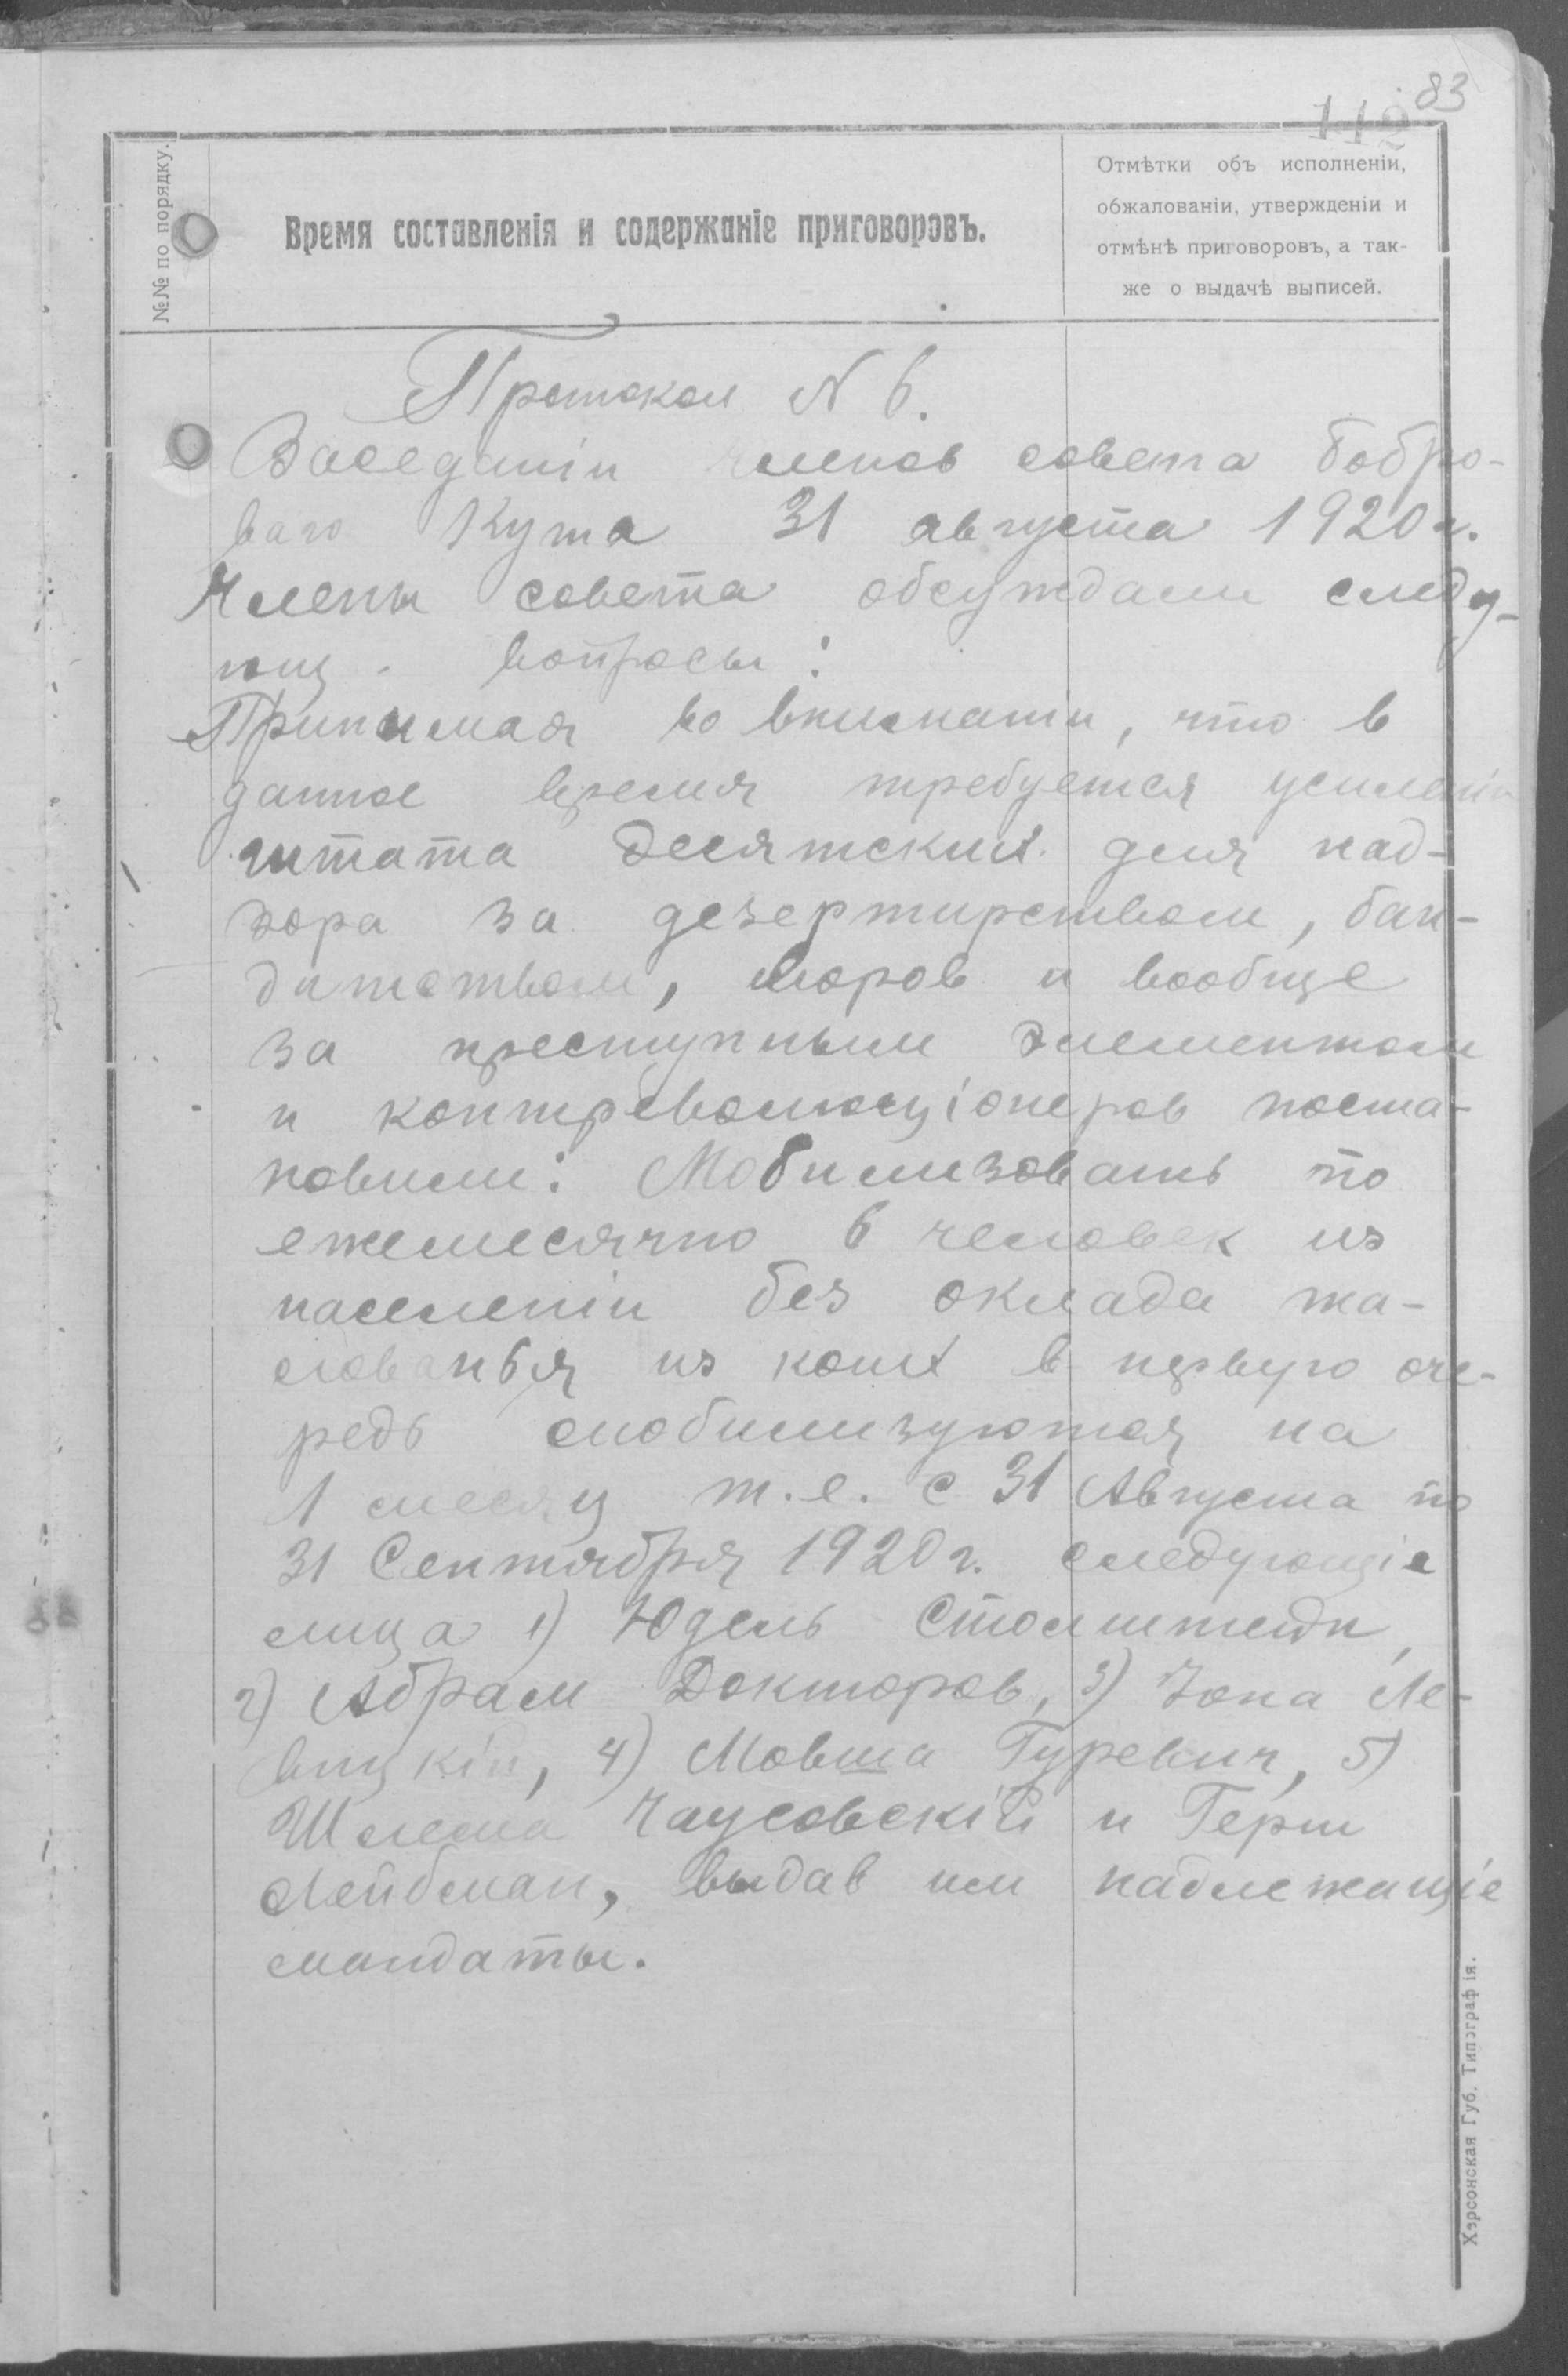 83
112
№№ по порядку.
Время составленія и содержаніе приговоровъ.
Отмѣтки объ исполненіи,
обжалованіи, утвержденіи и
отмѣнѣ приговоровъ, а так-
же о выдачѣ выписей.
Протокол N 6.
Заседаніи членов совета Бобро-
ваго Кута 31 августа 1920 г.
Члены совета обсуждали следу-
ющ. вопросы:
Принимая во внимании, что в
данное время требуется усиленіи
штата десятских для над-
зора за дезертирством, бан-
дитством, воров и вообще
за преступным элементом
и контрeволюціонеров поста-
новили: Мобилизовать по
ежемесячно 6 человек из
населеніи без оклада жа-
лованья из коих в первую оче-
редь смобилизуются на
1 месяц т.е. с 31 Августа по
31 Сентября 1920 г. следующіе
лица 1) Юдель Столштейн,
2) Абрам Докторов, 3) Іона Ле-
вицкій, 4) Мовша Гуревич, 5)
Шлема Чаусовскій и Герш
Лейбман, выдав им надлежащіе
мандаты.
Херсонская Губ. Типографія.